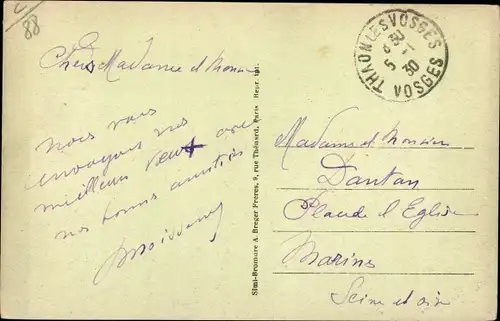 88
THAON LES VOSGES
8 30
5 - 1
30
VOSGES
Chers Madame et Monsieur
Nous vous
envoyons nos
meilleurs vœux avec
nos bonnes amitiés
Simi-Bromure A. Breger Frères, 9, rue Thénard, Paris Repr. Int.
Madame et Monsieur
Dantan
Place d'Eglise
Marines
Seine et oise